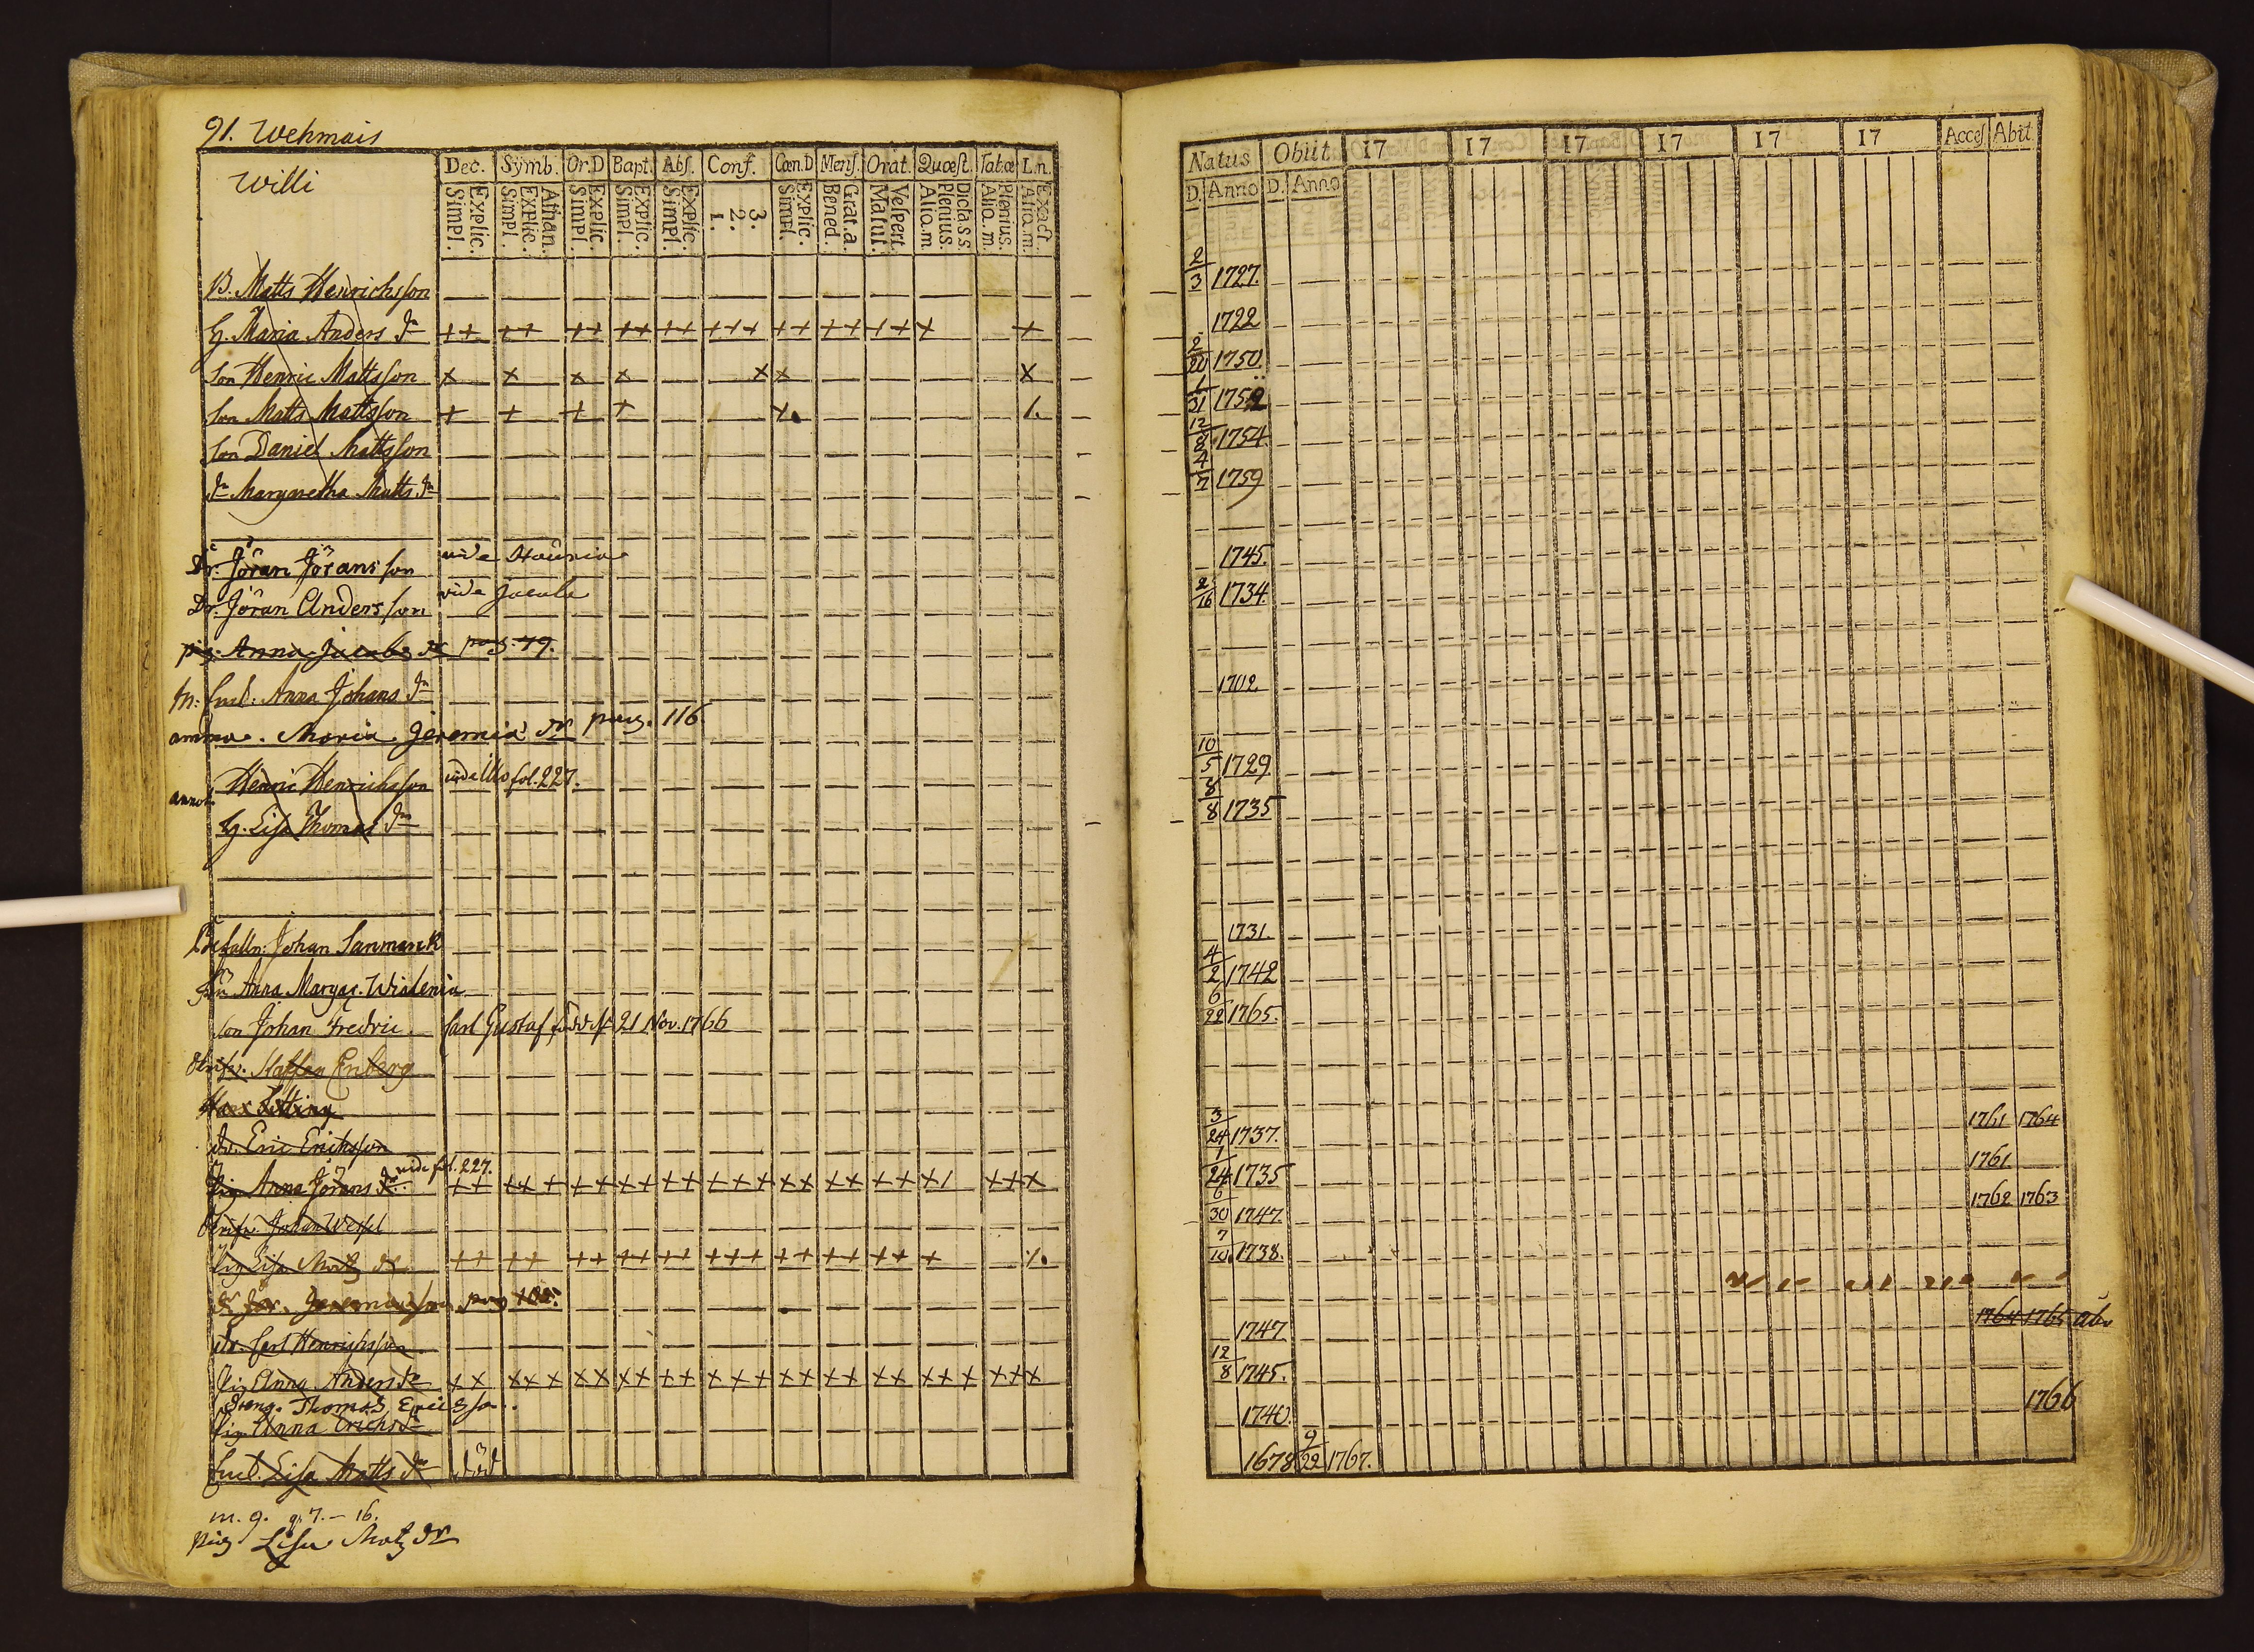 91. Wehmais
Willi
Dec. Symb. Or.D Bapt. Abs. Conf. Cœn.D Mens. Orat. Quæst. Tabæ L.n.
Explic. Simpl. Athan. Explic. Simpl. Explic. Simpl. Explic. Simpl. Explic. Simpl. 3. 2. 1. Explic. Simpl. Grat.a. Bened. Vespert. Matut. Dicta s.s. Plenius. Aliq.m. Plenius. Aliq.m. Exact. Aliq.m.
B. Matts Henrichsson
H. Maria Anders dr ++ ++ ++ ++ ++ +++ ++ ++ ++ + +
Son Henric Mattsson x x x x x x x
Son Matts Mattsson + + + +
Son Daniel Mattsson
dr Margaretha Matts dr
Dr. Jöran Jörans son vide
Dr. Jöran Anders son vide
pig. Anna Jacobs dr pag. 79.
Anna Johans dr
amma. Maria Jeremiæ dr pag. 116
Henric Henrichsson vide fol. 227.
H. Lisa Thomas dr
Befalln: Johan Sanmark
Fru Anna Margar. Widenia
Son Johan Fredric. Carl Gustaf född 21 Nov. 1766
Staffan Enberg
dr. Eric Erichsson
vide fol. 227.
Pig Anna Jörans dr ++ ++ + ++ ++ ++ +++ ++ ++ ++ +/ +++
Johan Wessel
Pig Lisa Matz dr ++ ++ ++ ++ ++ +++ ++ ++ ++ +
Jeremiæson pag
dr. Carl Henrichsson
Pig Anna Anders dr ++ +++ ++ ++ ++ +++ ++ ++ ++ +++ +++
Dreng. Thomas Ericsson
Pig. Anna Erichs dr
Lisa Matts dr död
m. 9. q. 7. – 16.
Pig Lisa Matz dr
Natus Obiit 17 17 17 17 17 17 Acces Abit
D. Anno D. Anno
2/3 1727.
1722
2/20 1750.
1/31 1752
12/8 1754
4/7 1759
1745.
2/16 1734.
1702.
10/5 1729
8/8 1735
1731.
4/2 1742
6/22 1765.
3/24 1737. 1761 1764
1/24 1735 1761
6/30 1747. 1762 1763
7/10 1738.
1747. 1764 1765 åbo
12/8 1745.
1740. 1766
1678 9/22 1767.